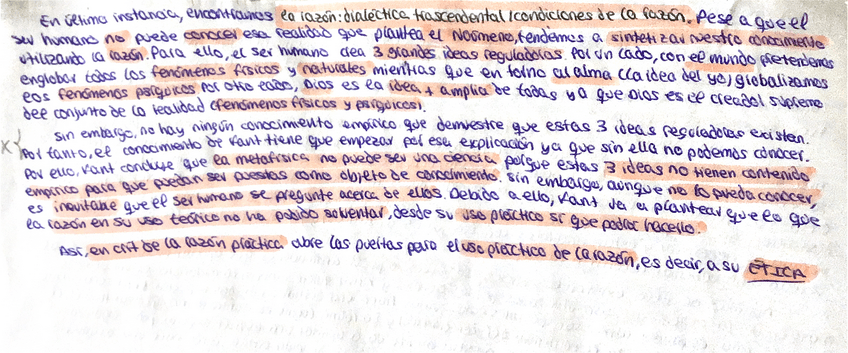 En última instancia, encontramos la razón: dialéctica trascendental/condiciones de la razón. Pese a que el
ser humano no puede conocer esa realidad que plantea el Noúmeno, tendemos a sintetizar nuestro conocimiento
utilizando la razón. Para ello, el ser humano crea 3 grandes ideas reguladoras. Por un lado, con el mundo pretendemos
englobar todos los fenómenos físicos y naturales mientras que en torno al alma (la idea del yo) globalizamos
los fenómenos psíquicos. Por otro lado, Dios es la idea + amplia de todas ya que Dios es el creador supremo
del conjunto de la realidad (fenómenos físicos y psíquicos).
Sin embargo, no hay ningún conocimiento empírico que demuestre que estas 3 ideas reguladoras existen.
Por tanto, el conocimiento de Kant tiene que empezar por esa explicación ya que sin ella no podemos conocer.
Por ello, Kant concluye que la metafísica no puede ser una ciencia porque estas 3 ideas no tienen contenido
empírico para que puedan ser puestas como objeto de conocimiento. Sin embargo, aunque no lo pueda conocer,
es inevitable que el ser humano se pregunte acerca de ellas. Debido a ello, Kant va a plantear que lo que
la razón en su uso teórico no ha podido solventar, desde su uso práctico sí que podrá hacerlo.
Así, en crít de la razón práctica abre las puertas para el uso práctico de la razón, es decir, a su ÉTICA